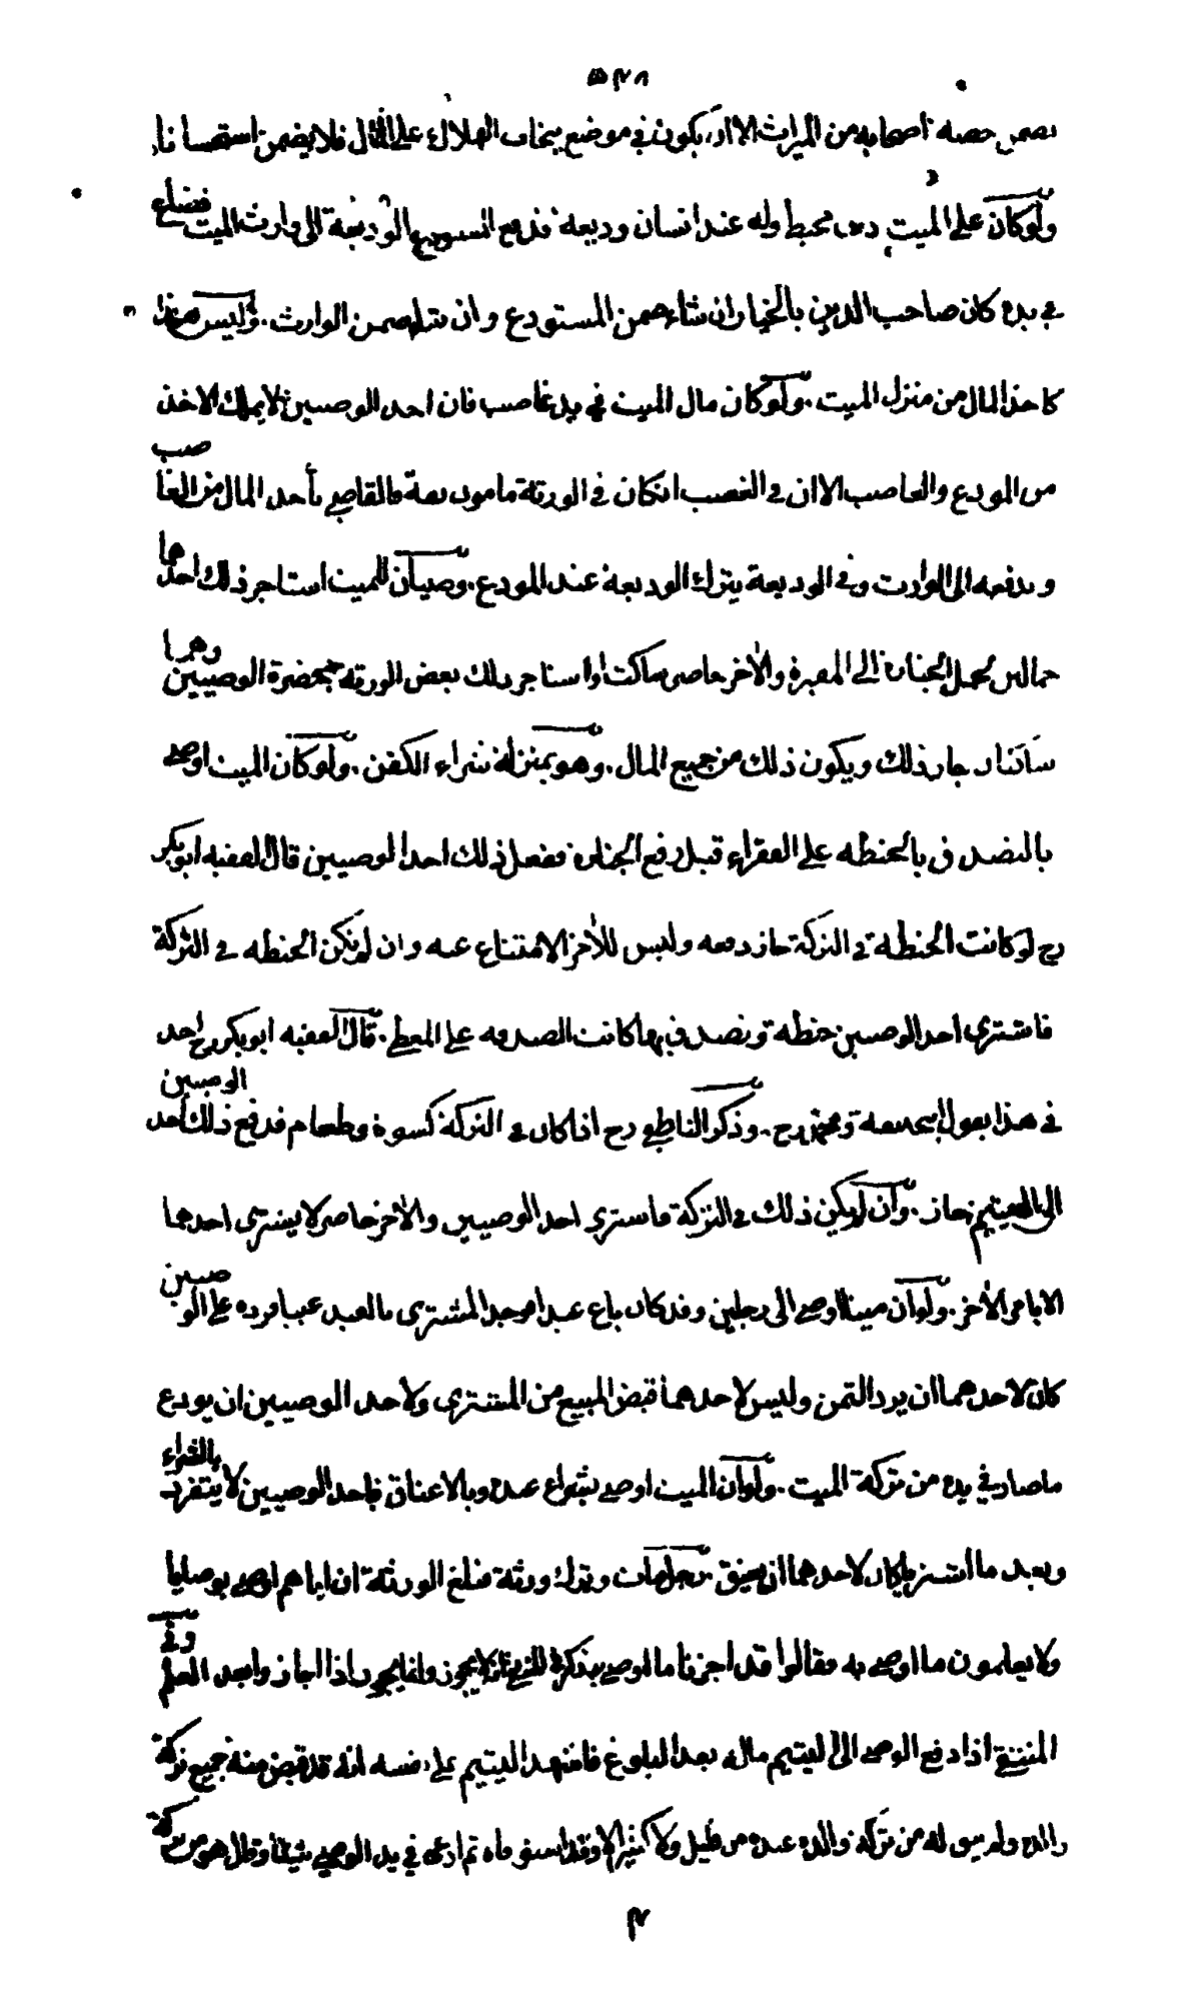 ٥٣٨
يضمن حصة اصحابه من الميراث الا ان يكون في موضع يخاف الهلاك على المال فلا يضمن استحسانا
ولو كان على الميت دين محيط وله عند انسان وديعة فدفع المستودع الوديعة الى وارث الميت فضاع
في يده كان صاحب الدين بالخيار ان شاء ضمن المستودع وان شاء ضمن الوارث . وليس هذا
كاخذ المال من منزل الميت . ولو كان مال الميت في يد غاصب فان احد الوصيين لا يملك الاخذ
من المودع والغاصب الا ان في الغصب ان كان في الورثة مامون ثقة فالقاضي يأخذ المال من الغاصب
ويدفعه الى الوارث وفي الوديعة يترك الوديعة عند المودع . وصيان للميت استاجر ذلك احدهما
حمالين لحمل الجنازة الى المقبرة والآخر حاضر ساكت او استاجر ذلك بعض الورثة بحضرة الوصيين وهما
ساكتان جاز ذلك ويكون ذلك من جميع المال . وهو بمنزلة شراء الكفن . ولو كان الميت اوصى
بالتصدق بالحنطة على الفقراء قبل رفع الجنازة ففعل ذلك احد الوصيين قال الفقيه ابو بكر
رح لو كانت الحنطة في التركة جاز دفعه وليس للآخر الامتناع عنه وان لم يكن الحنطة في التركة
فاشترى احد الوصيين حنطة وتصدق بها كانت الصدقة على المعطي . قال الفقيه ابو بكر رح احد
في هذا بقول ابي حنيفة ومحمد رح . وذكر الناطفي رح اذا كان في التركة كسوة وطعام فدفع ذلك احد الوصيين
الى اليتيم جاز . وان لم يكن ذلك في التركة فاشترى احد الوصيين والآخر حاضر لا يشترى احدهما
الا بامر الآخر . ولو ان ميتا اوصى الى رجلين وقد كان باع عبدا فوجد المشترى بالعبد عيبا فرده على الوصيين
كان لاحدهما ان يرد الثمن وليس لاحدهما قبض المبيع من المشترى ولاحد الوصيين ان يودع
ما صار في يده من تركة الميت . ولو ان الميت اوصى بشراء عبد وبالاعتاق فاحد الوصيين لا يتفرد بالشراء
وبعد ما اشتريا كان لاحدهما ان يعتق . رجل مات وترك ورثة فبلغ الورثة ان اباهم اوصى بوصايا
ولا يعلمون ما اوصى به فقالوا قد اجزنا ما اوصى به ذكر في المنتقى انه لا يجوز وانما يجوز اذا اجازوا بعد العلم وفي
المنتقى اذا دفع الوصى الى اليتيم ماله بعد البلوغ فاشهد اليتيم على نفسه انه قد قبض منه جميع تركة
والده ولم يبق له من تركة والده عنده من قليل ولا كثير الا وقد استوفاه ثم ادعى في يد الوصي شيئا وقال هو من تركة